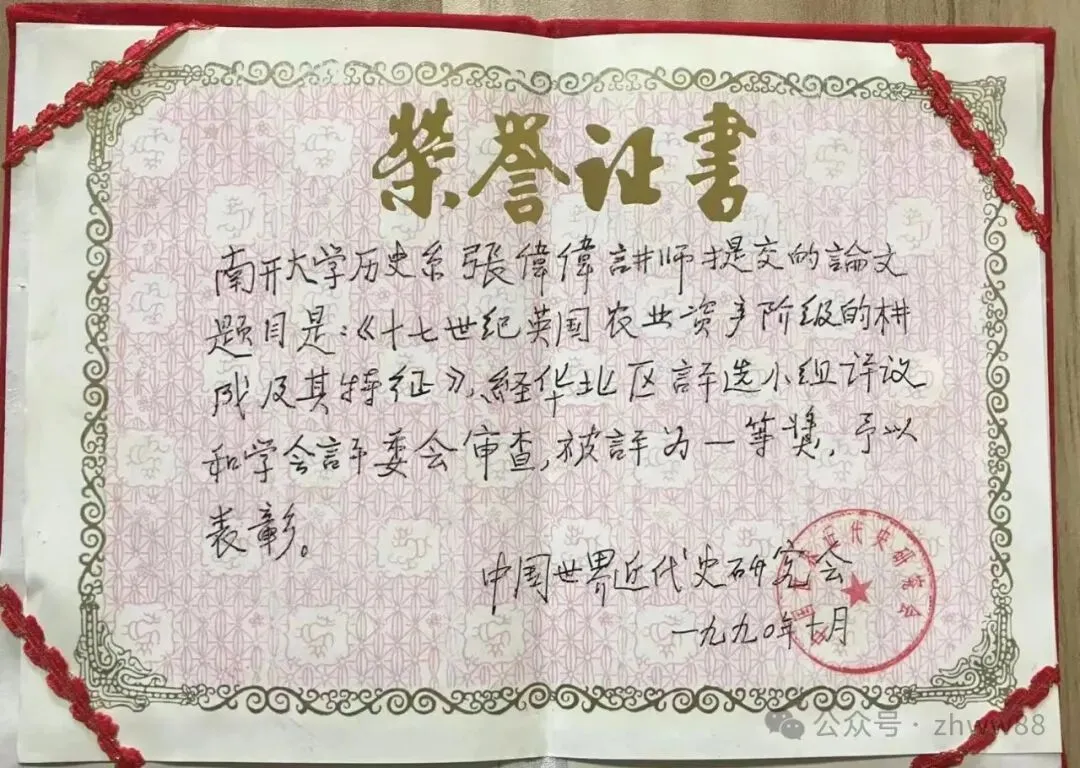 荣誉证书
南开大学历史系張偉偉讲师提交的論文
题目是:《十七世纪英国农业资产阶级的构
成及其特征》,経华北区評选小组评议
和学会評委会审查,被評为一等奬,予以
表彰。
中国世界近代史研究会
一九九〇年十月
近代史研究会
公众号·zhww88